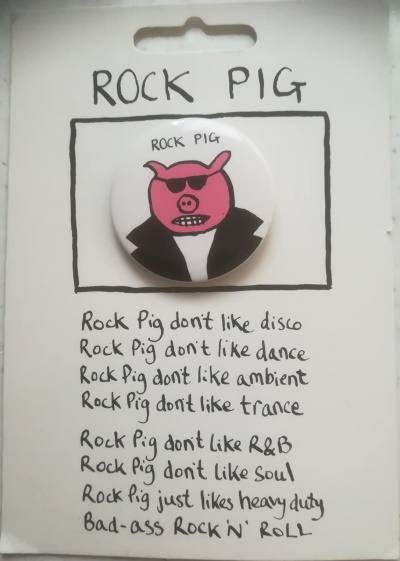 ROCK PIG
ROCK PIG
Rock Pig don't like disco
Rock Pig don't like dance
Rock Pig don't like ambient
Rock Pig don't like trance
Rock Pig don't Like R&B
Rock Pig don't Like Soul
Rock Pig just likes heavy duty
Bad-ass ROCK 'N' ROLL